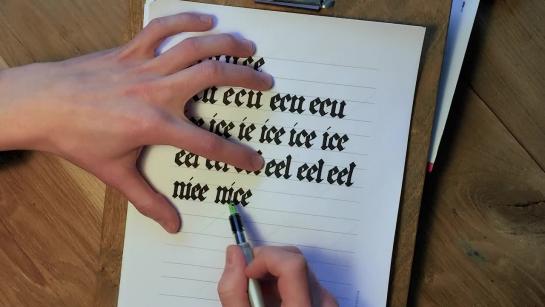 ecu ecu ecu
ice ie ice ice ice
eel eel eel eel
niee nice